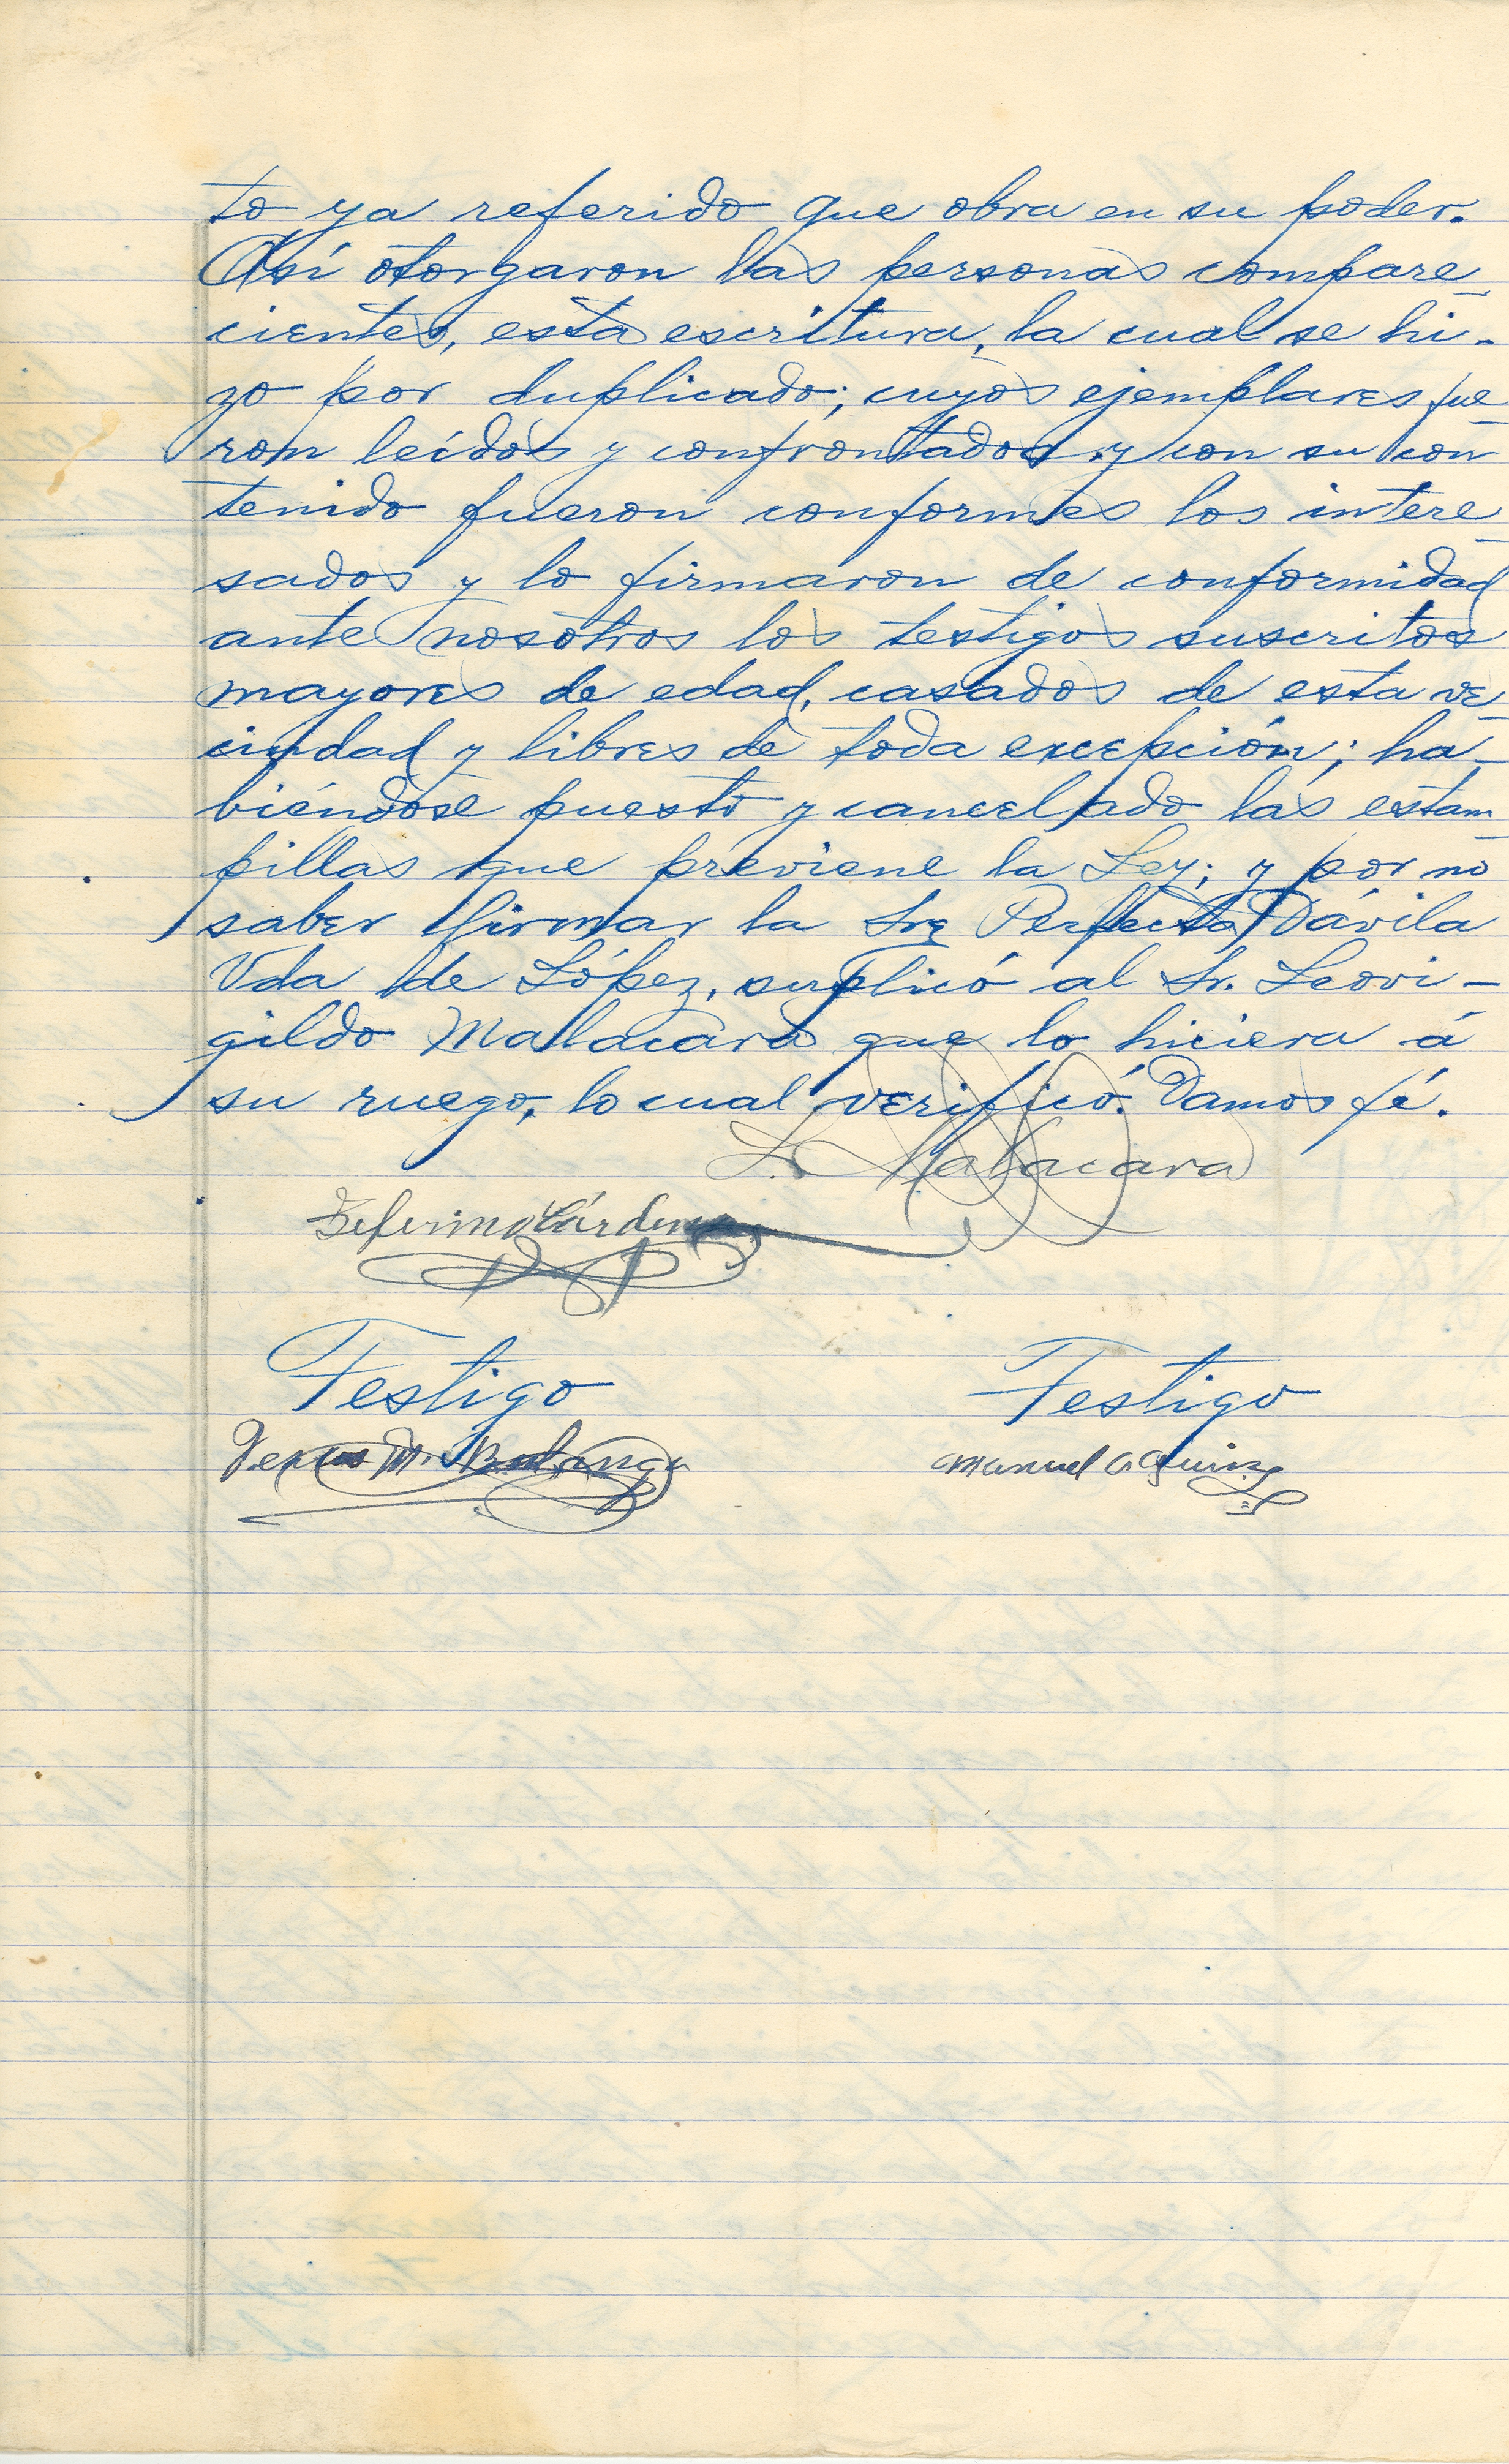 to ya referido que obra en su poder.
Así otorgaron las personas compare
cientes, esta escritura, la cual se hi-
zo por duplicado; cuyos ejemplares fue
ron leídos y confrontados y con su con
tenido fueron conformes los intere
sados y lo firmaron de conformidad
ante nosotros los testigos suscritos
mayores de edad, casados de esta ve
cindad y libres de toda excepción; ha-
biéndose puesto y cancelado las estam
pillas que previene la Ley; y por no
saber firmar la Sra Perfecta Dávila
Vda de López, suplicó al Sr. Leovi-
gildo Malacara que lo hiciera á
su ruego, lo cual verificó. Damos fé.
L. Malacara
Zeferino Cárdenas
Testigo Testigo
M. Manuel